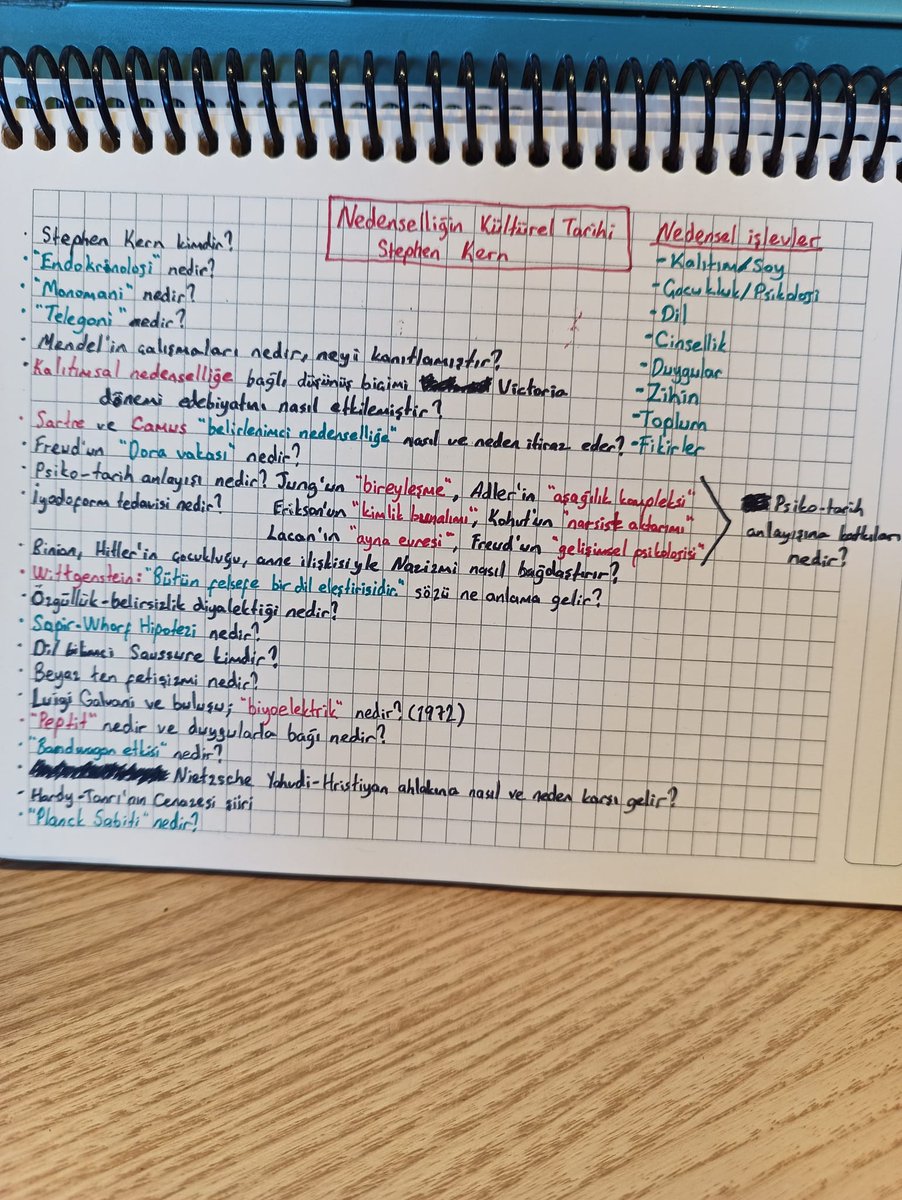 Nedenselliğin Kültürel Tarihi
Stephen Kern
Nedensel işlevler
- Kalıtım/Soy
- Çocukluk/Psikoloji
- Dil
- Cinsellik
- Duygular
- Zihin
- Toplum
- Fikirler
· Stephen Kern kimdir?
· "Endokrinoloji" nedir?
· "Monomani" nedir?
· "Telegoni" nedir?
· Mendel'in çalışmaları nedir, neyi kanıtlamıştır?
· Kalıtımsal nedenselliğe bağlı düşünüş biçimi Victoria
dönemi edebiyatını nasıl etkilemiştir?
· Sartre ve Camus "belirlenimci nedenselliğe" nasıl ve neden itiraz eder?
· Freud'un "Dora vakası" nedir?
· Psiko-tarih anlayışı nedir? Jung'un "bireyleşme", Adler'in "aşağılık kompleksi"
· İyodoform tedavisi nedir? Erikson'un "kimlik bunalımı", Kohut'un "narsist aktarımı"
Lacan'ın "ayna evresi", Freud'un "gelişimsel psikolojisi"
Psiko-tarih
anlayışına katkıları
nedir?
· Binion, Hitler'in çocukluğu, anne ilişkisiyle Nazizmi nasıl bağdaştırır?
· Wittgenstein: "Bütün felsefe bir dil eleştirisidir." sözü ne anlama gelir?
· Özgüllük-belirsizlik diyalektiği nedir?
· Sapir-Whorf Hipotezi nedir?
· Dil bilimci Saussure kimdir?
· Beyaz ten fetişizmi nedir?
· Luigi Galvani ve buluşu; "biyoelektrik" nedir? (1972)
· "Peptit" nedir ve duygularla bağı nedir?
· "Bandwagon etkisi" nedir?
· Nietzsche Yahudi-Hristiyan ahlakına nasıl ve neden karşı gelir?
· Hardy-Tanrı'nın Cenazesi şiiri
· "Planck Sabiti" nedir?